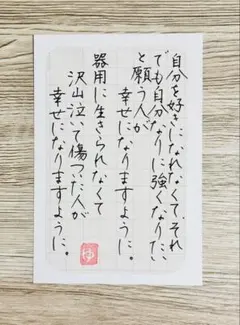 自分を好きになれなくて、それ
でも自分なりに強くなりたい
と願う人が
幸せになりますように。
器用に生きられなくて
沢山泣いて傷ついた人が
幸せになりますように。
ゆ